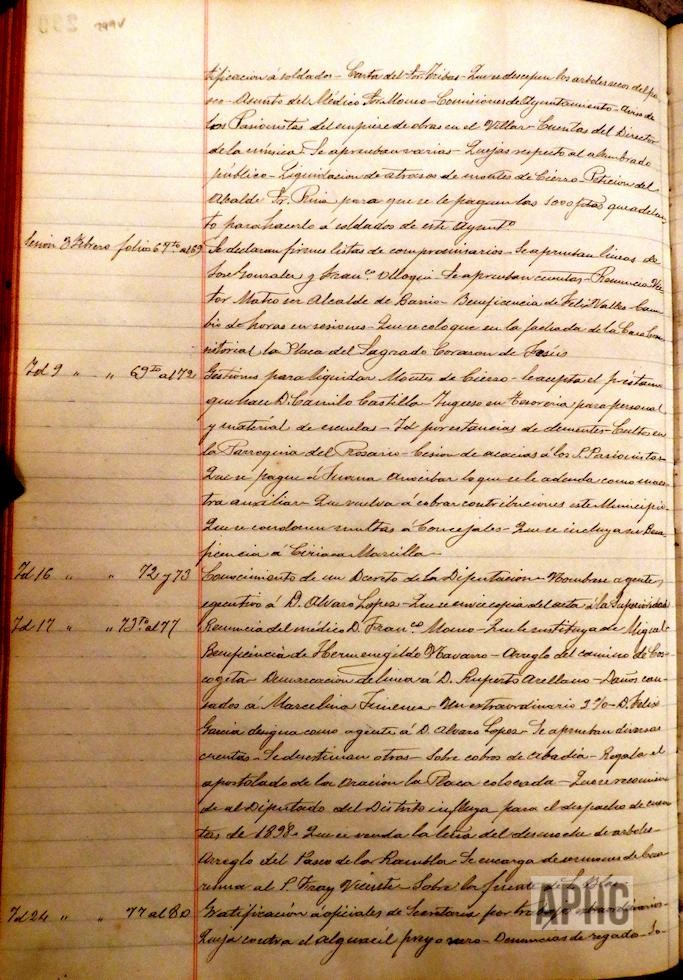 299v
tificacion á soldados - Carta del Sr. Tribas - Que se descepen los arboles secos del pa-
seo - Asunto del Médico Sr. Moreo - Comisiones de Ayuntamiento - Aviso de
los Pasionistas del empiece de obras en el Villar - Cuentas del Director
de la música. Se aprueban varias - Quejas respecto al alumbrado
público - Liquidacion de atrasos de montes de Cierzo - Peticion del
Alcalde Sr. para que se le paguen las 1000 ptas que adelan-
tó para hacerlo á soldados de este Ayuntº
Sesion 3 Febrero folios 67 to al 69 Se declaran firmes listas de compromisarios - Se aprueban lineas de
Jose Gonzalez y Franco - Se aprueban cuentas - Renuncia Vic-
tor Mateo ser Alcalde de Barrio - Beneficencia de Felix Valles - Cam-
bio de horas en sesiones - Que se coloque en la fachada de la Casa Con-
sistorial la Placa del Sagrado Corazon de Jesús
Id 9 " " 69 to al 72 Gestiones para liquidar Montes de Cierzo - Se acepta el préstamo
que hace D. Camilo Castilla - Ingreso en Tesoreria para personal
y material de escuelas - Id por estancias de dementes - Cultos en
la Parroquia del Rosario - Cesion de acacias á los P. Pasionistas
Que se pague á Juana lo que se le adeuda como maes-
tra auxiliar - Que vuelva á cobrar contribuciones este Municipio
Que se condonen multas á Concejales - Que se incluya en Bene-
ficencia á Ciriaca Marcilla
Id 16 " " 72 y 73 Conocimiento de un Decreto de la Diputacion - Nombrar agente
egecutivo á D. Alvaro Lopez - Que se envie copia del acta á la Superioridad
Id 17 " " 73 to al 77 Renuncia del médico D. Franco Moreo - Que le sustituya de Miguel -
Beneficencia de Hermenegildo Navarro - Arreglo del camino de Cos-
cogeta - Demarcacion de linea á D. Ruperto Arellano - Daños cau-
sados á Marcelina Jimenez - Un extraordinario 3 % - D. Felix
Garcia designa como agente á D. Alvaro Lopez - Se aprueban diversas
cuentas - Se desestiman otras - Sobre cobros de cibadia - Regala el
apostolado de la oracion la Placa colocada - Que se recomien-
de al Diputado del Distrito influya para el despacho de cuen-
tas de 1898 - Que se venda la leña del desmoche de arboles -
Arreglo del Paseo de la Rambla - Se encarga de sermones de Cua-
resma al P. Fray Vicente - Sobre la fuente de S. Blas
Id 24 " " 77 al 80 Gratificación á oficiales de Secretaria por trabajos extraordinarios -
Queja contra el alguacil pregonero - Denuncias de regado - So-
APHC